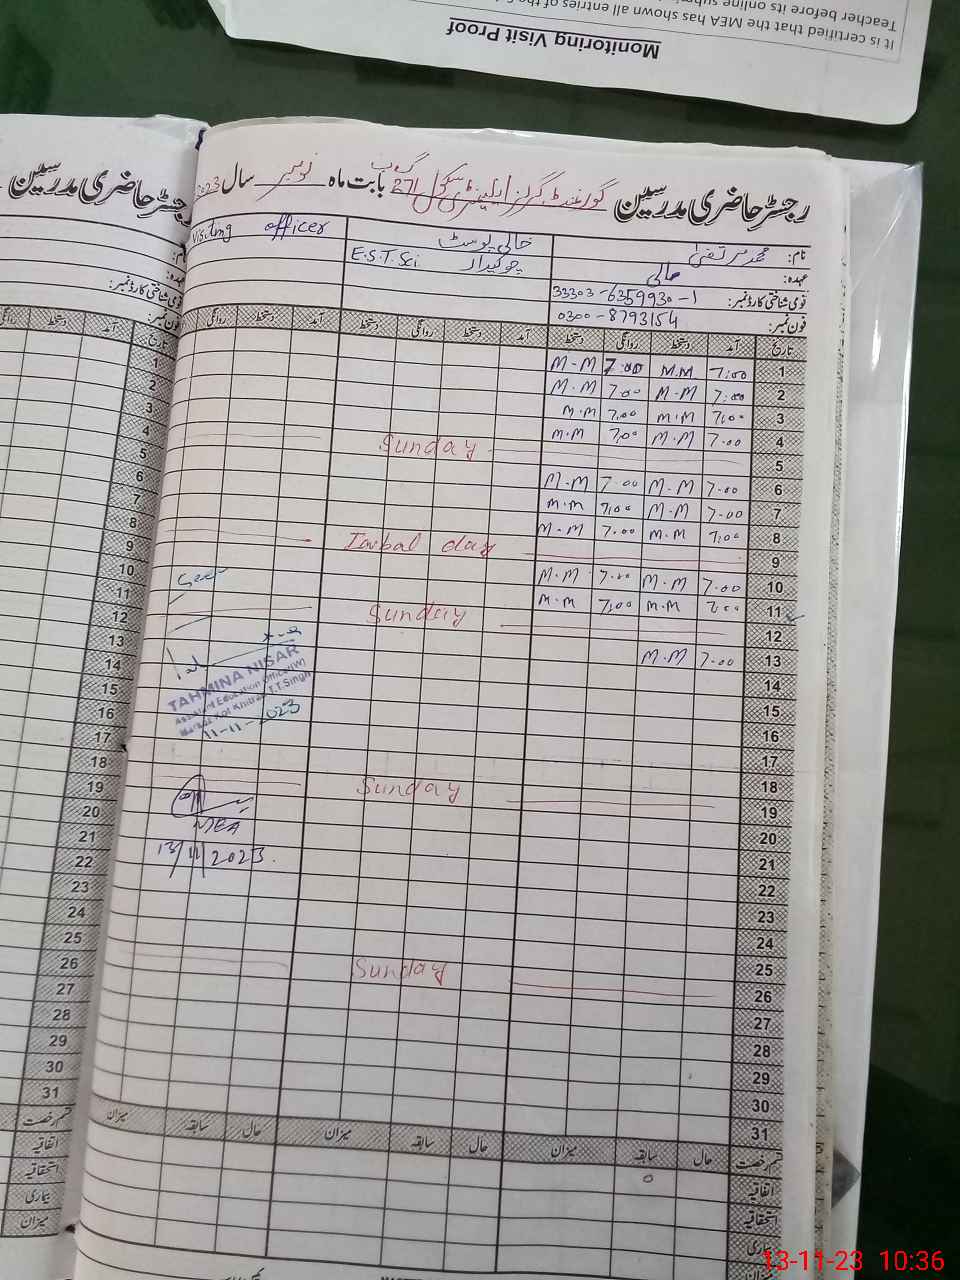 It is certified that the MEA has shown all entries of the
Teacher before its online
Monitoring Visit Proof
رجسٹر حاضری مدرسین گورنمنٹ گرلز ایلیمنٹری سکول 271 گ ب بابت ماہ نومبر سال 2023
نام: محمد مرتضیٰ خالی پوسٹ Visiting officer
عہدہ: مالی چوکیدار E.S.T.Sci
قومی شناختی کارڈ نمبر: 33303-6359930-1
فون نمبر: 0300-8793154
تاریخ آمد دستخط روانگی دستخط آمد دستخط روانگی دستخط آمد دستخط روانگی
1 7:00 M.M 7:00 M-M
2 7:00 M-M 7:00 M-M
3 7:00 M.M 7:00 M.M
4 7:00 M-M 7:00 M.M
5 Sunday
6 7:00 M-M 7:00 M-M
7 7:00 M-M 7:00 M.M
8 7:00 M.M 7:00 M-M
9 Iqbal day
10 7:00 M-M 7:00 M-M
11 7:00 M-M 7:00 M.M
Seen
12 Sunday
13 7:00 M.M
14
TAHMINA NISAR
Assistant Education Officer(W)
Markaz Kot Khitran T.T.Singh
11-11-2023
15
16
17
18
19 Sunday
20
MEA
21
13/11/2023.
22
23
24
25
26 Sunday
27
28
29
30
31
قسم رخصت حال سابقہ میزان حال سابقہ میزان حال سابقہ میزان
اتفاقیہ 0
استحقاقیہ
بیماری
میزان
رجسٹر حاضری مدرسین
نام:
عہدہ:
قومی شناختی کارڈ نمبر:
فون نمبر:
تاریخ آمد دستخط روانگی
1
2
3
4
5
6
7
8
9
10
11
12
13
14
15
16
17
18
19
20
21
22
23
24
25
26
27
28
29
30
31
قسم رخصت
اتفاقیہ
استحقاقیہ
بیماری
میزان
13-11-23 10:36